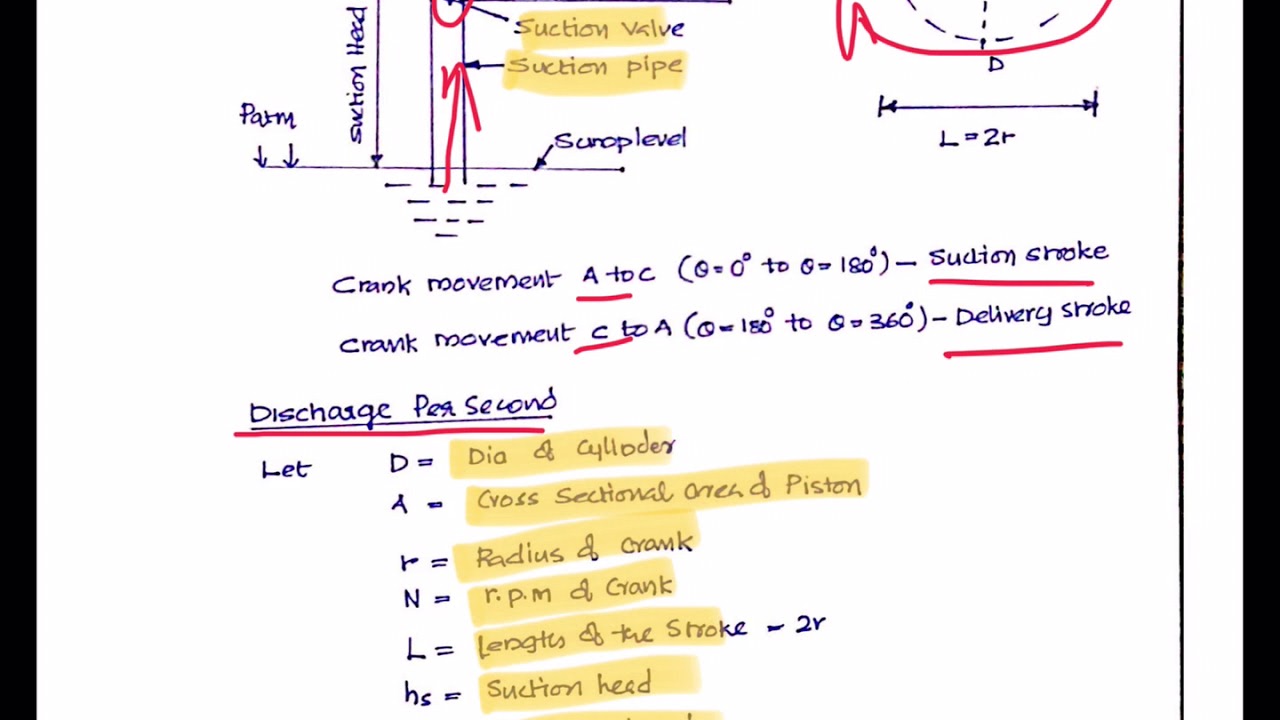 Suction Valve
Suction pipe
Suction Head
Patm
Sumplevel
D
L=2r
Crank movement A to C (θ=0° to θ=180°) – Suction stroke
Crank movement C to A (θ=180° to θ=360°) – Delivery stroke
Discharge Per Second
Let D = Dia of Cylinder
A = Cross Sectional area of Piston
r = Radius of crank
N = r.p.m of Crank
L = Length of the Stroke = 2r
hs = Suction head